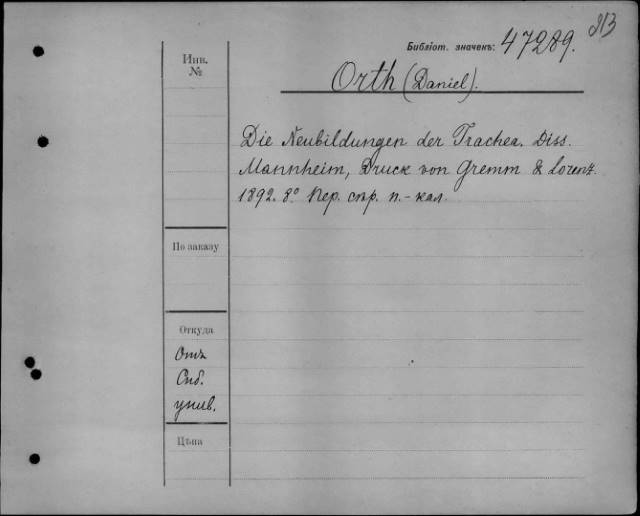 313
Библіот. значекъ: 47289.
Инв.
№
Orth (Daniel).
Die Neubildungen der Trachea. Diss.
Mannheim, Druck von Gremm & Lorenz.
1892. 8° Пер. стр. п.-кал.
По заказу
Откуда
Отъ
Спб.
унив.
Цѣна